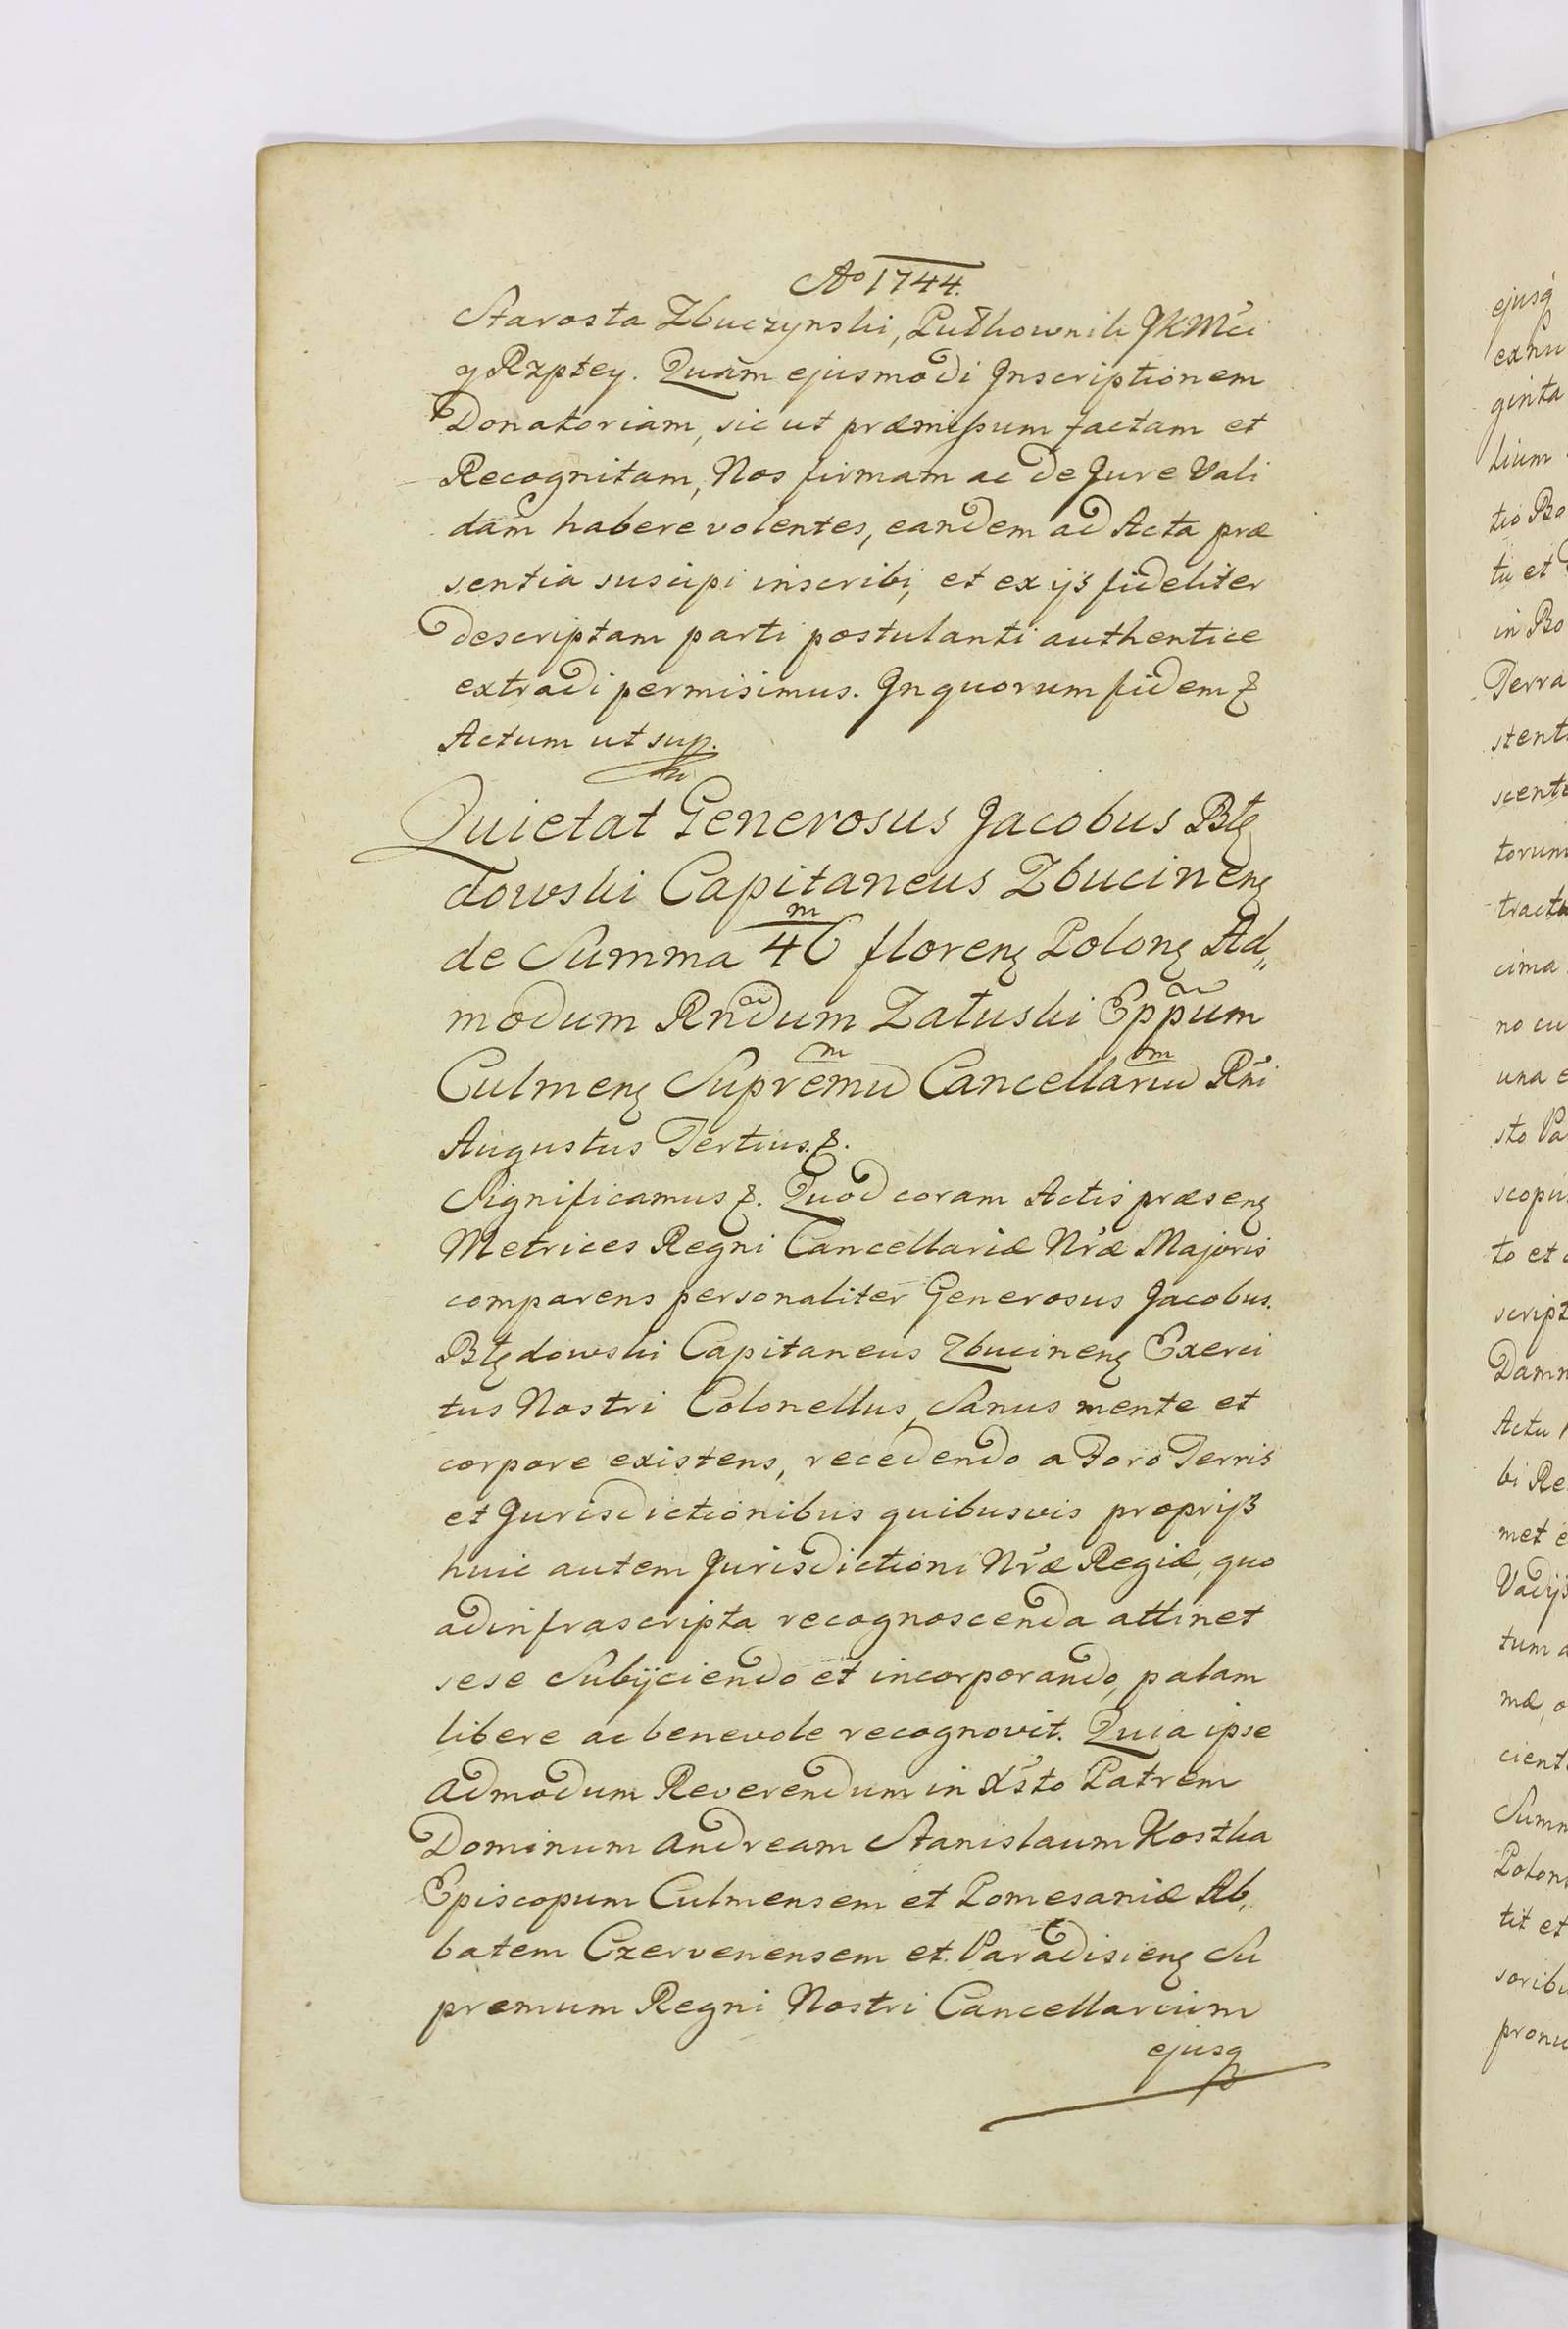 Ao 1744.
Starosta Zbuczynski, Pułkownik JKMći
y Rzptey. Quam ejusmodi Inscriptionem
Donatoriam, sic ut præmissum factam et
Recognitam, Nos firmam ac de Jure Vali
dam habere volentes, eandem ad Acta præ
sentia suscipi inscribi, et ex ijs fideliter
descriptam parti postulanti authentice
extradi permisimus. In quorum fidem &
Actum ut sup.
Quietat Generosus Jacobus Błę
dowski Capitaneus Zbucineñ
de Summa 46 m floreñ Poloñ Ad„
modum Rndum Załuski Eppum
Culmeñ Supremũ Cancellariũ Rñi
Augustus Tertius &.
Significamus &. Quod coram Actis præseñ
Metrices Regni Cancellariæ Nræ Majoris
comparens personaliter Generosus Jacobus.
Błędowski Capitaneus Zbucineñ Exerci
tus Nostri Colonellus, Sanus mente et
corpore existens, recedendo a Foro Terris
et Jurisdictionibus quibusvis proprijs
huic autem Jurisdictioni Nræ Regiæ, quo
ad infrascripta recognoscenda attinet
sese Subijciendo et incorporando, palam
libere ac benevole recognovit. Quia ipse
Admodum Reverendum in Xsto Patrem
Dominum Andream Stanislaum Kostka
Episcopum Culmensem et Pomesaniæ Ab„
batem Czervenensem et Paradisieñ Su
premum Regni Nostri Cancellarium
ejusq
ejusq
ginta
tio Bo
tu et
in Bo
Terra
stent
scent
torum
tract
cima
no cu
una e
sto Pa
scopu
to et
script
Damn
Actu
bi Re
met e
Vadijs
tum a
mæ, o
cient
Summ
Polon
tit et
soribu
pronu